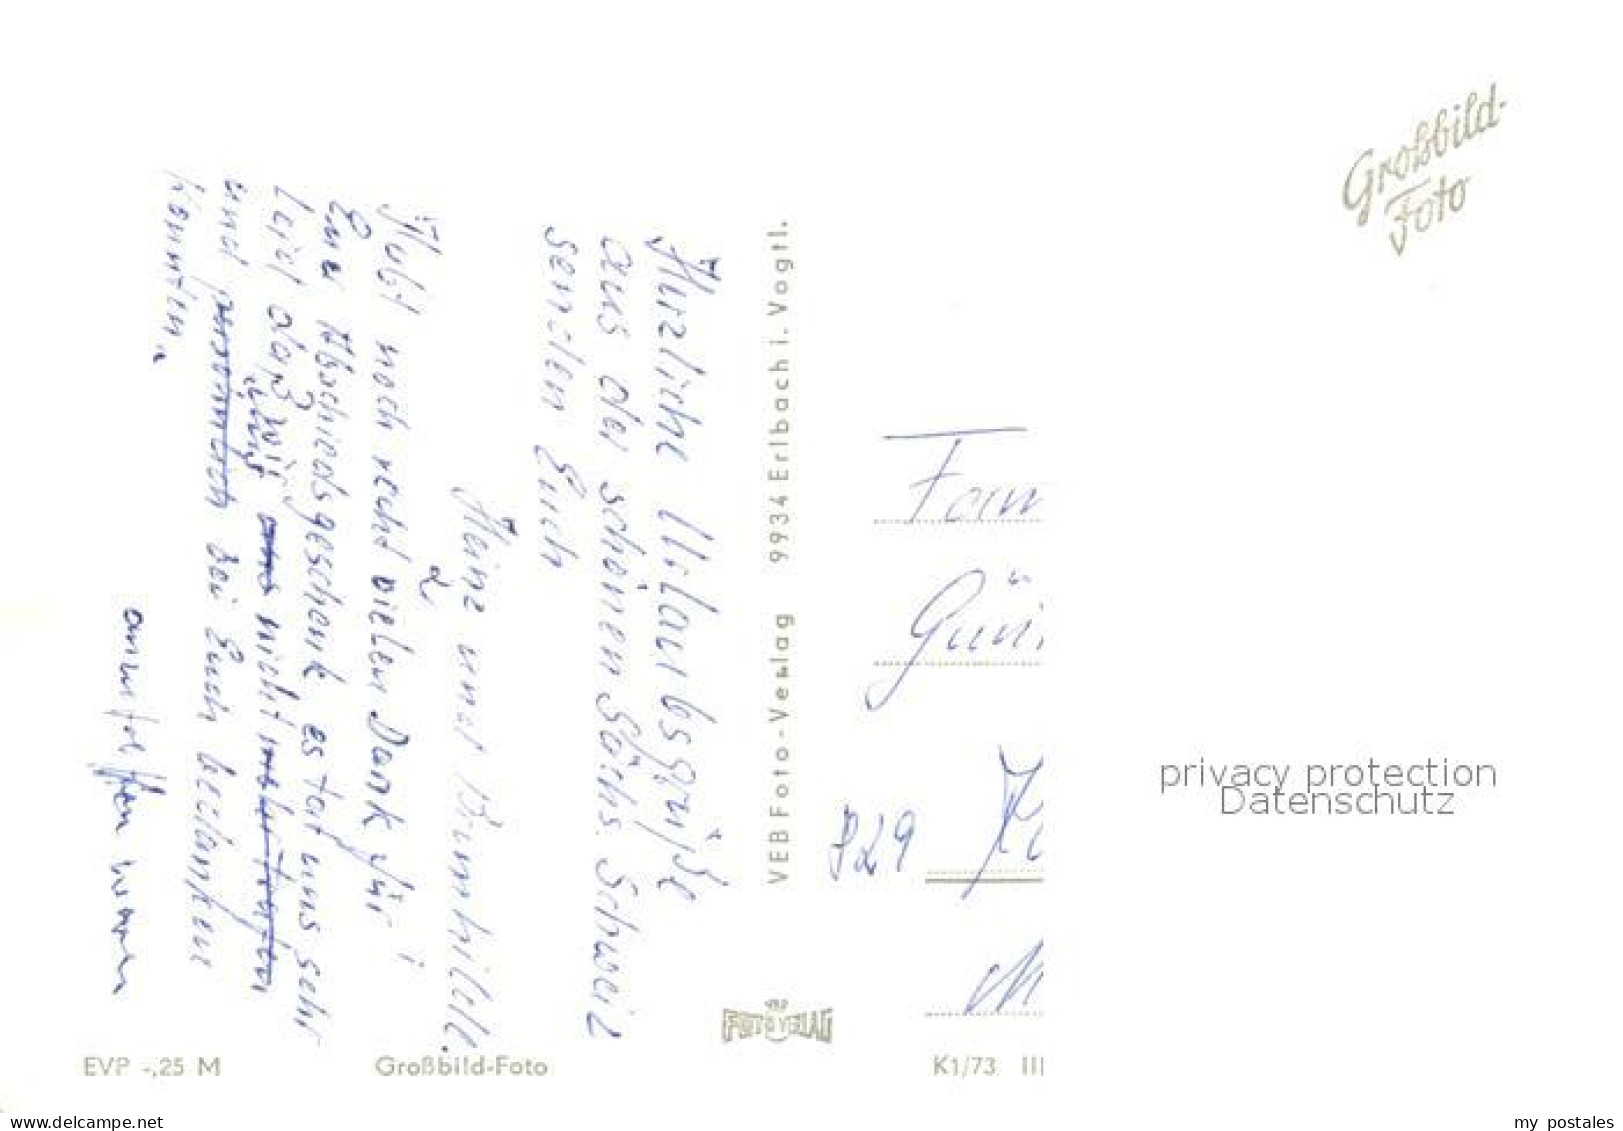 Herzliche Urlaubsgrüße
aus der schönen Sächs. Schweiz
senden Euch
Heinz und Brunhilde.
Habt noch recht vielen Dank für
Eure Abschiedsgeschenk es tat uns sehr
Leid daß wir uns nicht
und bei Euch bedanken
konnten.
VEB Foto-Verlag 9934 Erlbach i. Vogtl.
Großbild-
Foto
Fam
Gün
829
M
privacy protection
Datenschutz
FOTOVERLAG
EVP -,25 M
Großbild-Foto
K1/73 III
www.ansichtskartenwelt.de
my postales